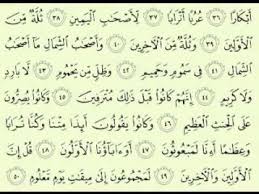 أَبْكَارًا ٣٦ عُرُبًا أَتْرَابًا ٣٧ لِّأَصْحَٰبِ ٱلْيَمِينِ ٣٨ ثُلَّةٌ مِّنَ
ٱلْأَوَّلِينَ ٣٩ وَثُلَّةٌ مِّنَ ٱلْءَاخِرِينَ ٤٠ وَأَصْحَٰبُ ٱلشِّمَالِ مَآ أَصْحَٰبُ
ٱلشِّمَالِ ٤١ فِى سَمُومٍ وَحَمِيمٍ ٤٢ وَظِلٍّ مِّن يَحْمُومٍ ٤٣ لَّا بَارِدٍ
وَلَا كَرِيمٍ ٤٤ إِنَّهُمْ كَانُوا۟ قَبْلَ ذَٰلِكَ مُتْرَفِينَ ٤٥ وَكَانُوا۟ يُصِرُّونَ
عَلَى ٱلْحِنثِ ٱلْعَظِيمِ ٤٦ وَكَانُوا۟ يَقُولُونَ أَئِذَا مِتْنَا وَكُنَّا تُرَابًا
وَعِظَٰمًا أَءِنَّا لَمَبْعُوثُونَ ٤٧ أَوَءَابَآؤُنَا ٱلْأَوَّلُونَ ٤٨ قُلْ إِنَّ
ٱلْأَوَّلِينَ وَٱلْءَاخِرِينَ ٤٩ لَمَجْمُوعُونَ إِلَىٰ مِيقَٰتِ يَوْمٍ مَّعْلُومٍ ٥٠